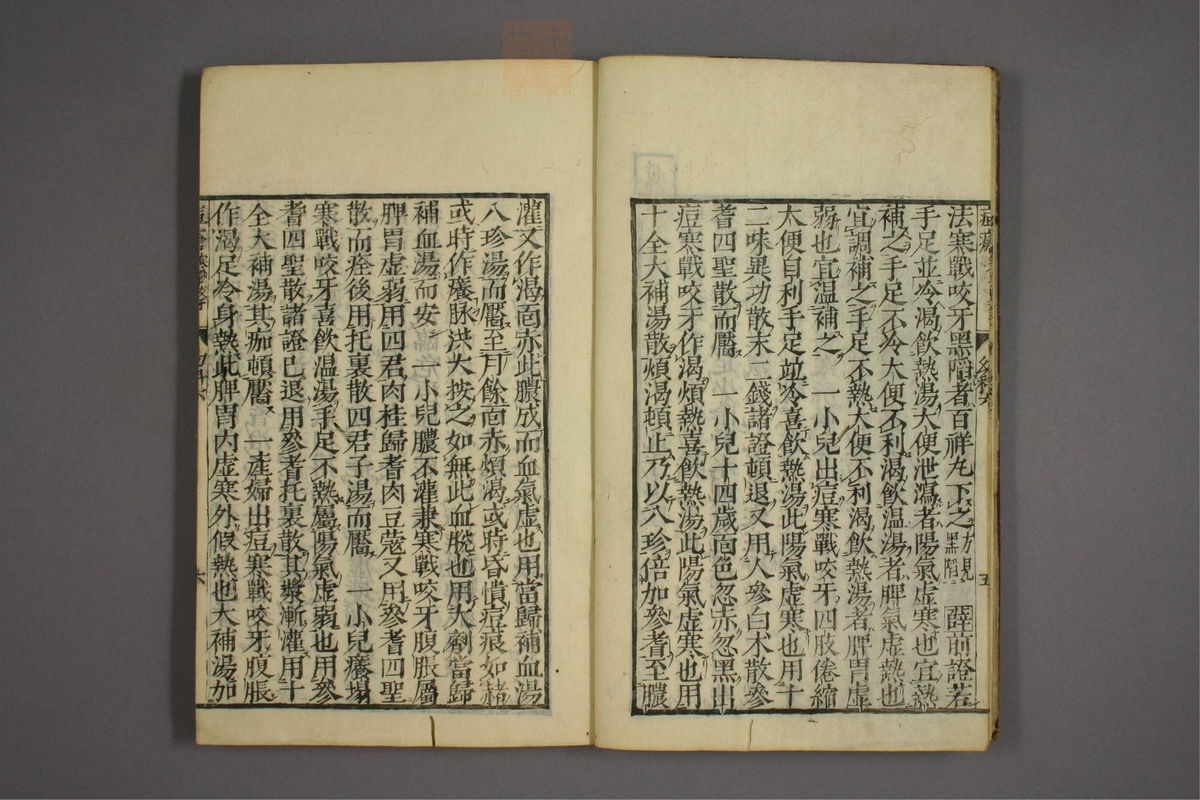 法寒戰咬牙黑陷者百祥丸下之方見黑陷 薛前證若
手足並冷渴飲熱湯大便泄瀉者陽氣虛寒也宜熱
補之手足不冷大便不利渴飲溫湯者脾氣虛熱也
宜調補之手足不熱大便不利渴飲熱湯者脾胃虛
弱也宜溫補之 一小兒出痘寒戰咬牙四肢倦縮
大便自利手足並冷喜飲熱湯此陽氣虛寒也用十
二味異功散末二錢諸證頓退又用人參白朮散參
耆四聖散而靨 一小兒十四歲面色忽赤忽黑出
痘寒戰咬牙作渴煩熱喜飲熱湯此陽氣虛寒也用
十全大補湯散煩渴頓止乃以八珍倍加參耆至膿
五
灌又作渴面赤此膿成而血氣虛也用當歸補血湯
八珍湯而靨至月餘面赤煩渴或時昏憒痘痕如赭
或時作癢脉洪大按之如無此血脫也用大劑當歸
補血湯而安 一小兒膿不灌隶寒戰咬牙腹脹屬
脾胃虛弱用四君肉桂歸耆肉豆蔻又用參耆四聖
散而痊後用托裏散四君子湯而靨 一小兒癢塌
寒戰咬牙喜飲溫湯手足不熱屬陽氣虛弱也用參
耆四聖散諸證已退用參耆托裏散其漿漸灌用十
全大補湯其痂頓靨 一產婦出痘寒戰咬牙腹脹
作渴足冷身熱此脾胃内虛寒外假熱也大補湯加
六